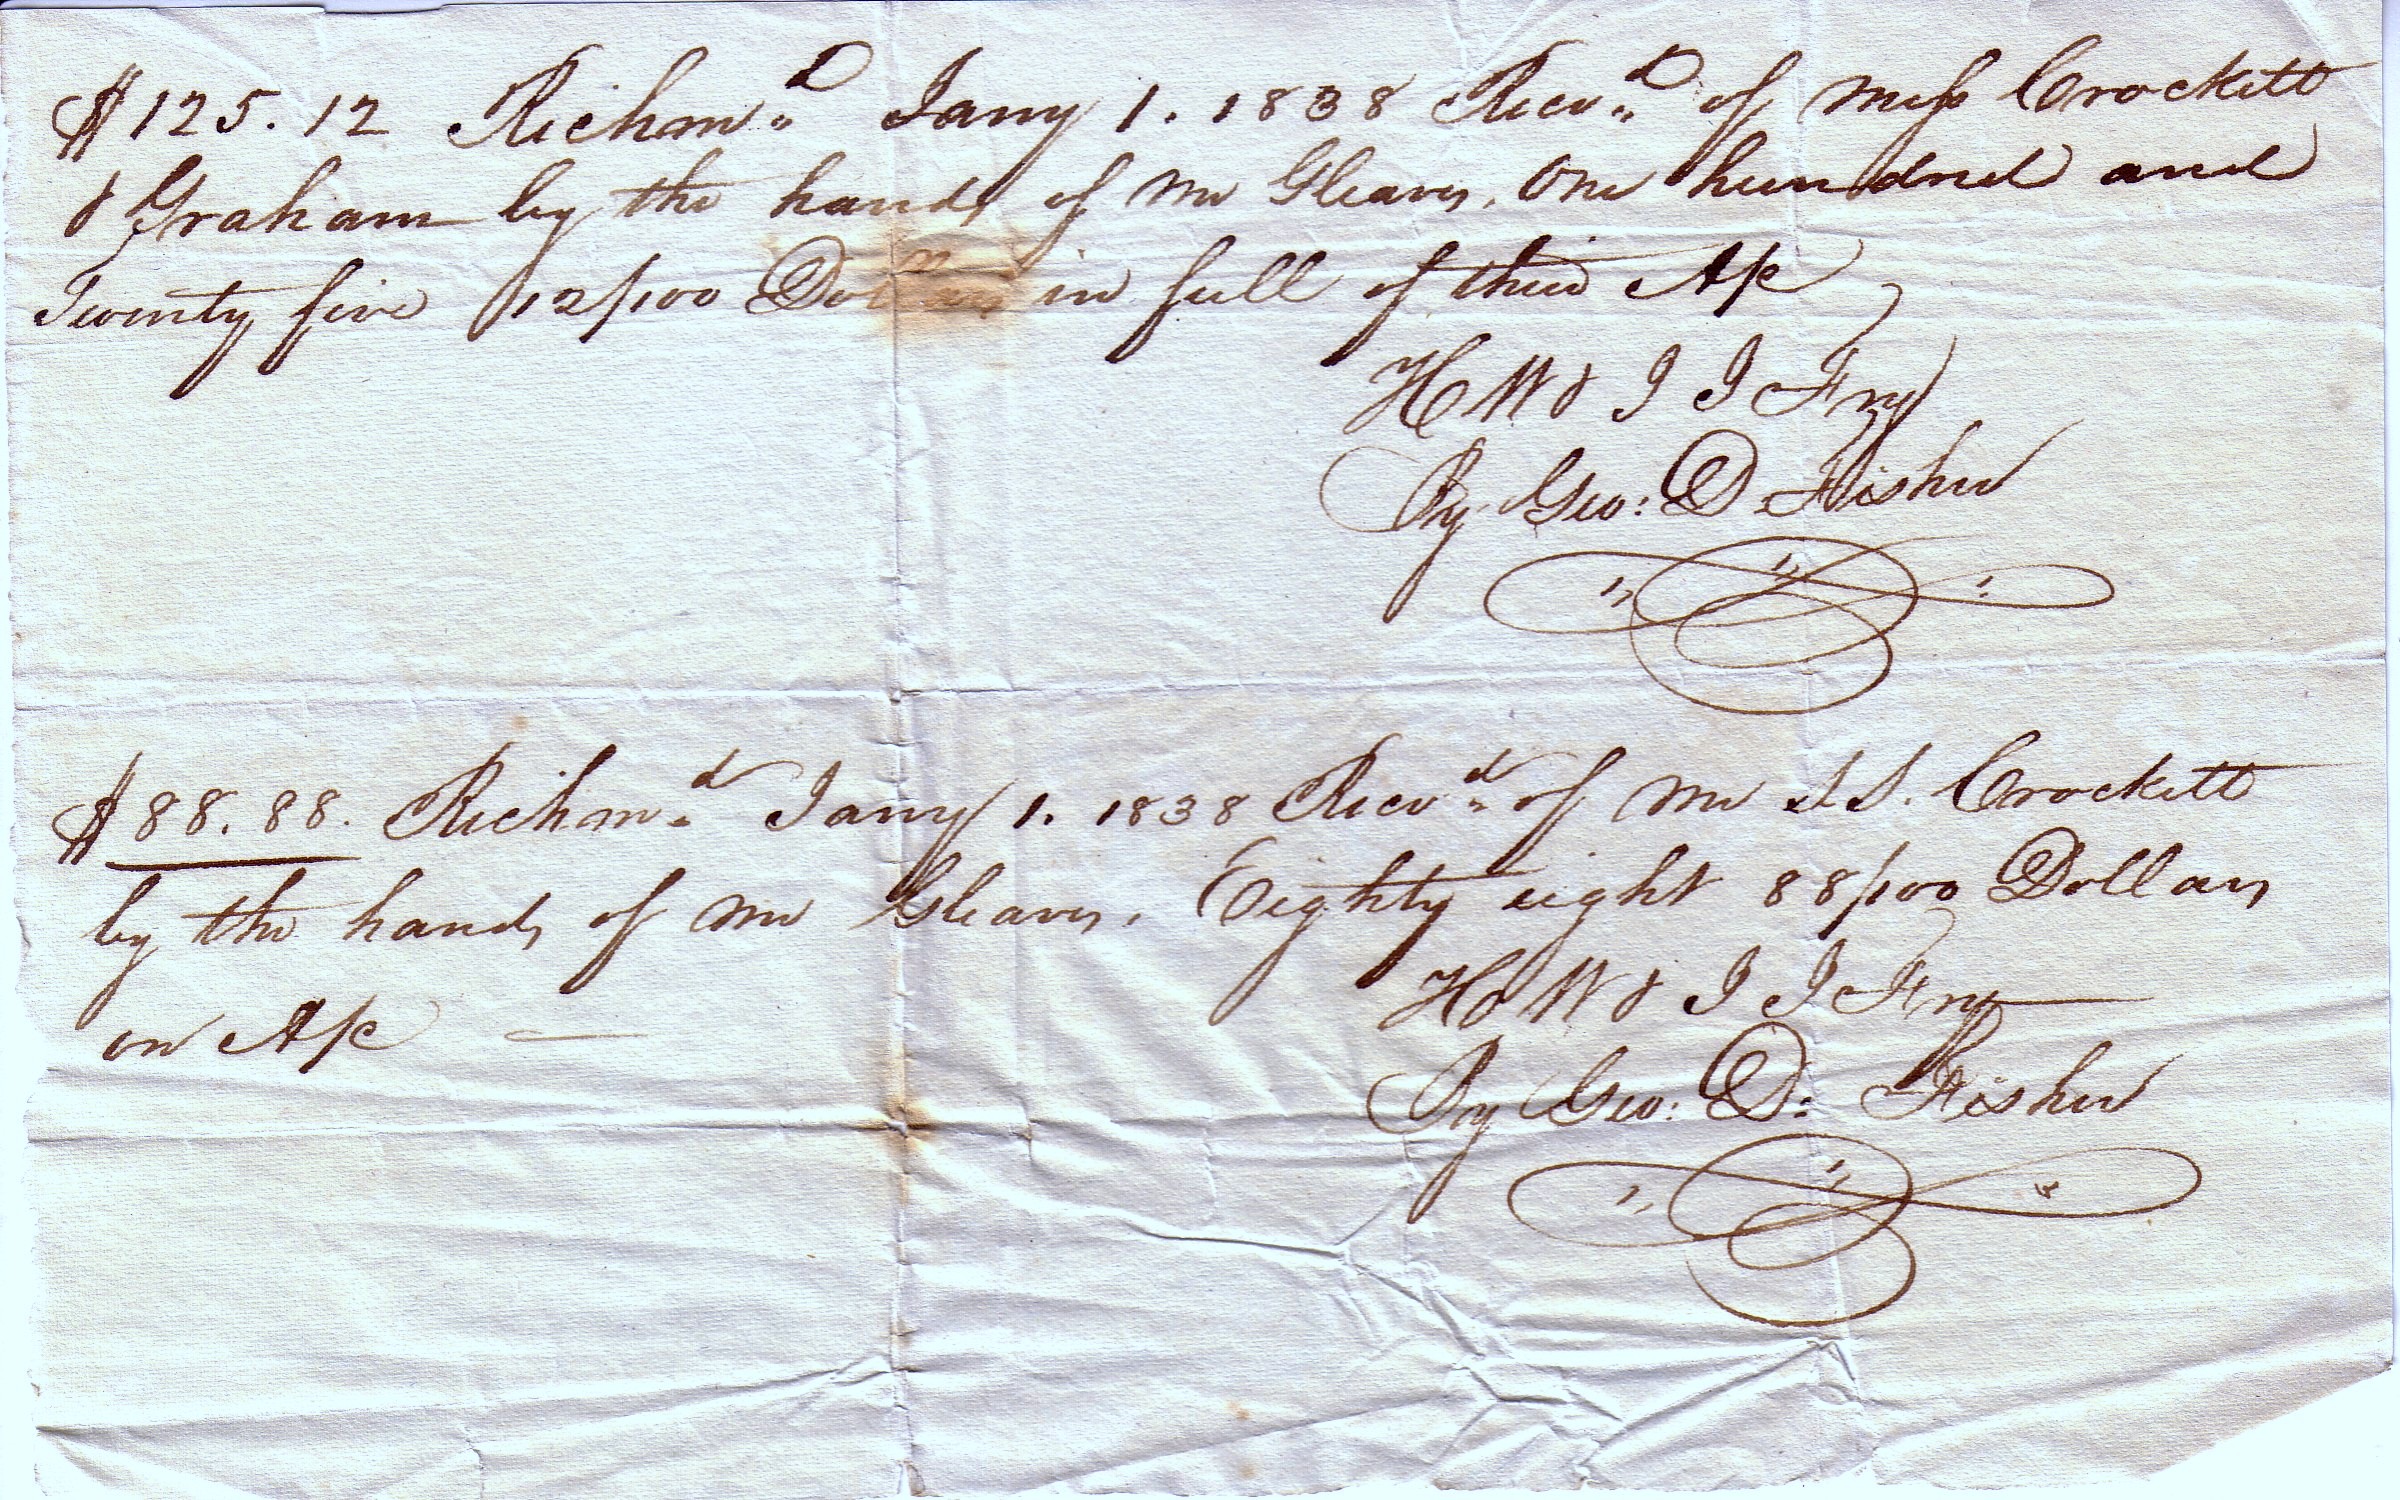 $125.12 Richm.d Jany 1. 1838 Recv.d of Mess Crockett
& Graham by the hands of Mr Gleaves, One hundred and
Twenty five 12/100 Dollars in full of their A/c
H W & J J Fry
By Geo: D Fisher
$88.88. Richm.d Jany 1. 1838 Recv.d of Mr S S. Crockett
by the hands of Mr Gleaves, Eighty eight 88/100 Dollars
on A/c —
H W & J J Fry
By Geo: D: Fisher